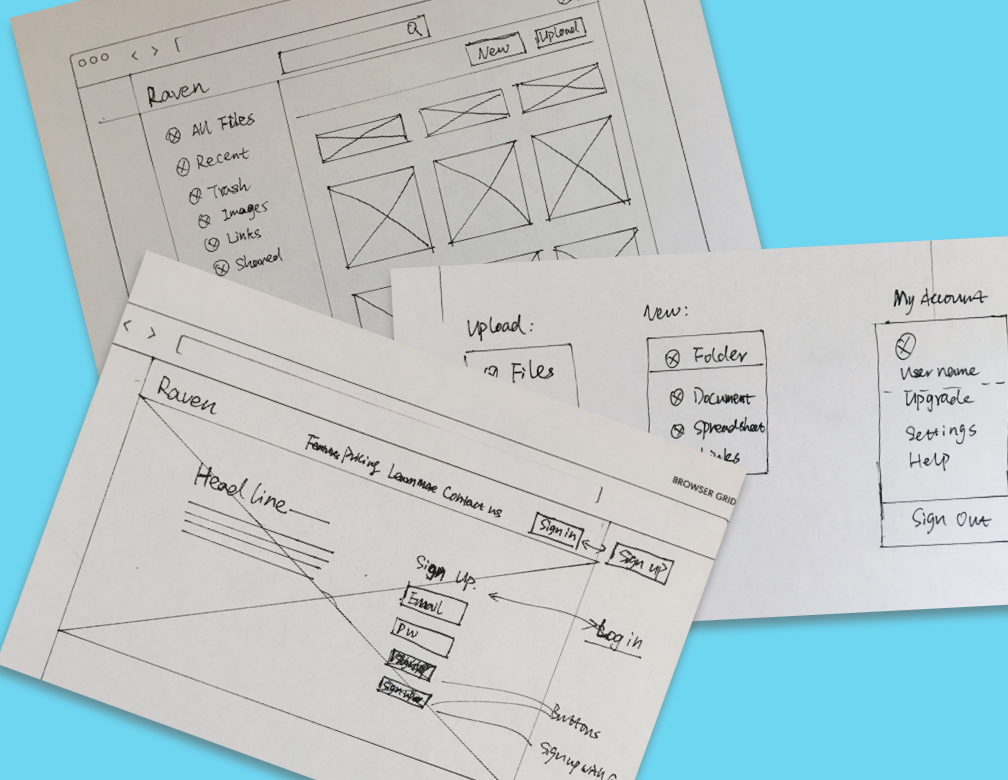 Raven
New
Upload
All Files
Recent
Trash
Images
Links
Shared
Upload:
Files
New:
Folder
Document
Spreadsheet
My Account
User name
Upgrade
Settings
Help
Sign Out
BROWSER GRID
Raven
Features Pricing Learn more Contact us
Sign in
Sign up
Headline
Sign Up
Email
PW
Log in
Buttons
Sign up with